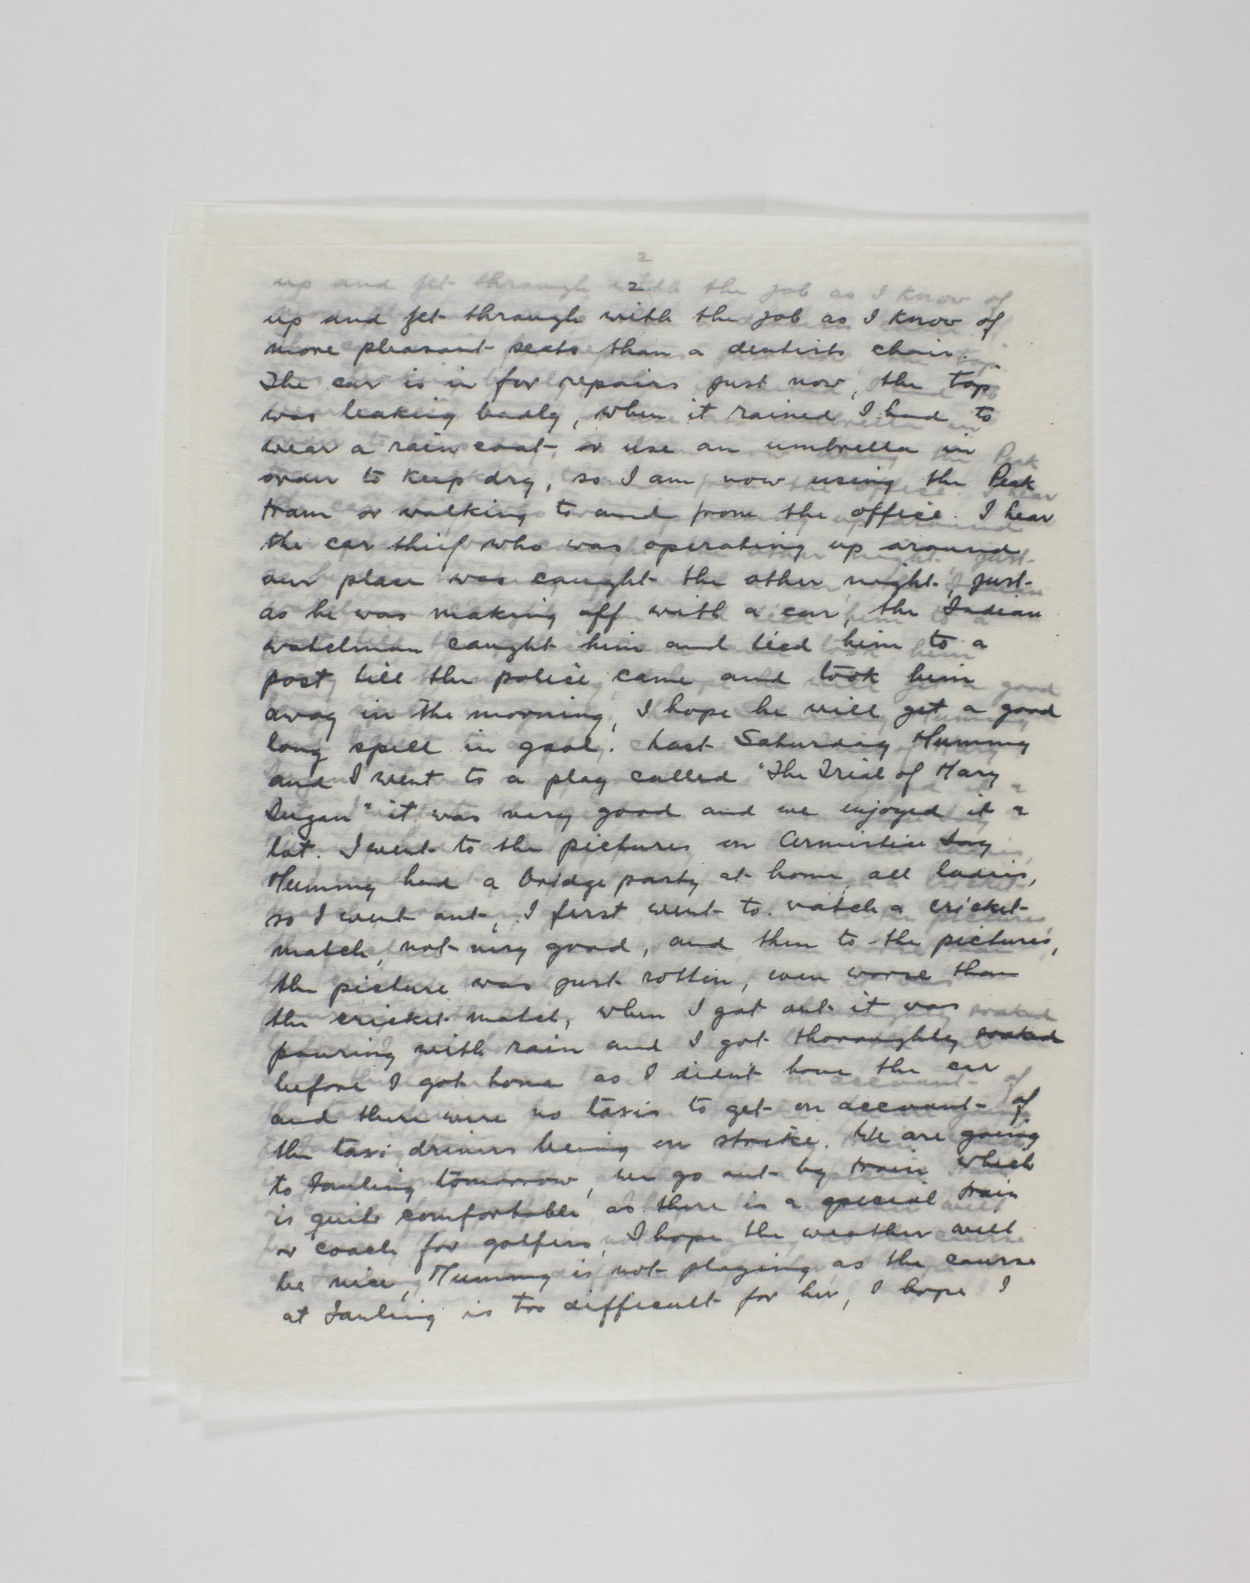 2
up and get through with the job as I know of
more pleasant seats than a dentists chair.
The car is in for repairs just now, the top
was leaking badly, when it rained I had to
wear a rain coat or use an umbrella in
order to keep dry, so I am now using the Peak
tram or walking to and from the office. I hear
the car thief who was operating up around
our place was caught the other night, just
as he was making off with a car, the Indian
watchman caught him and tied him to a
post till the police came and took him
away in the morning, I hope he will get a good
long spell in gaol. Last Saturday Mummy
and I went to a play called "The Trial of Mary
Dugan" it was very good and we enjoyed it a
lot. I went to the pictures on Armistice Day
Mummy had a Bridge party at home, all ladies,
so I went out, I first went to watch a cricket
match, not very good, and then to the pictures,
the picture was just rotten, even worse than
the cricket match, when I got out it was
pouring with rain and I got thoroughly soaked
before I got home as I didn't have the car
and there were no taxis to get on account of
the taxi drivers being on strike. We are going
to Fanling tomorrow, we go out by train which
is quite comfortable as there is a special train
or coach for golfers, I hope the weather will
be nice, Mummy is not playing as the course
at Fanling is too difficult for her, I hope I